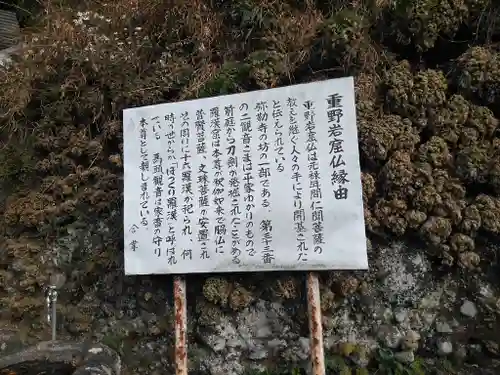 重野岩窟仏縁由
重野岩窟仏は元禄年間仁聞菩薩の
教えを継ぐ人々の手により開基された
と伝えられている
弥勒寺の坊の一部である 第三十三番
の二観音さまは平家ゆかりのもので
前庭から刀剣が発掘されたことがある
羅漢窟は本尊が釈迦如来で脇仏に
普賢菩薩、文殊菩薩が安置され
その周りに十六羅漢が祀られ 何
時の世からか「ぽっくり羅漢」と呼ばれ
ている 馬頭観音は家畜の守り
本尊として親しまれている。
合掌